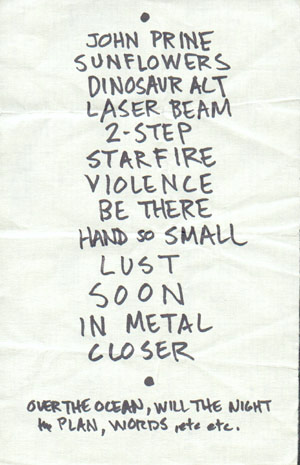 JOHN PRINE
SUNFLOWERS
DINOSAUR ALT
LASER BEAM
2-STEP
STARFIRE
VIOLENCE
BE THERE
HAND SO SMALL
LUST
SOON
IN METAL
CLOSER
OVER THE OCEAN, WILL THE NIGHT
PLAN, WORDS, etc etc.